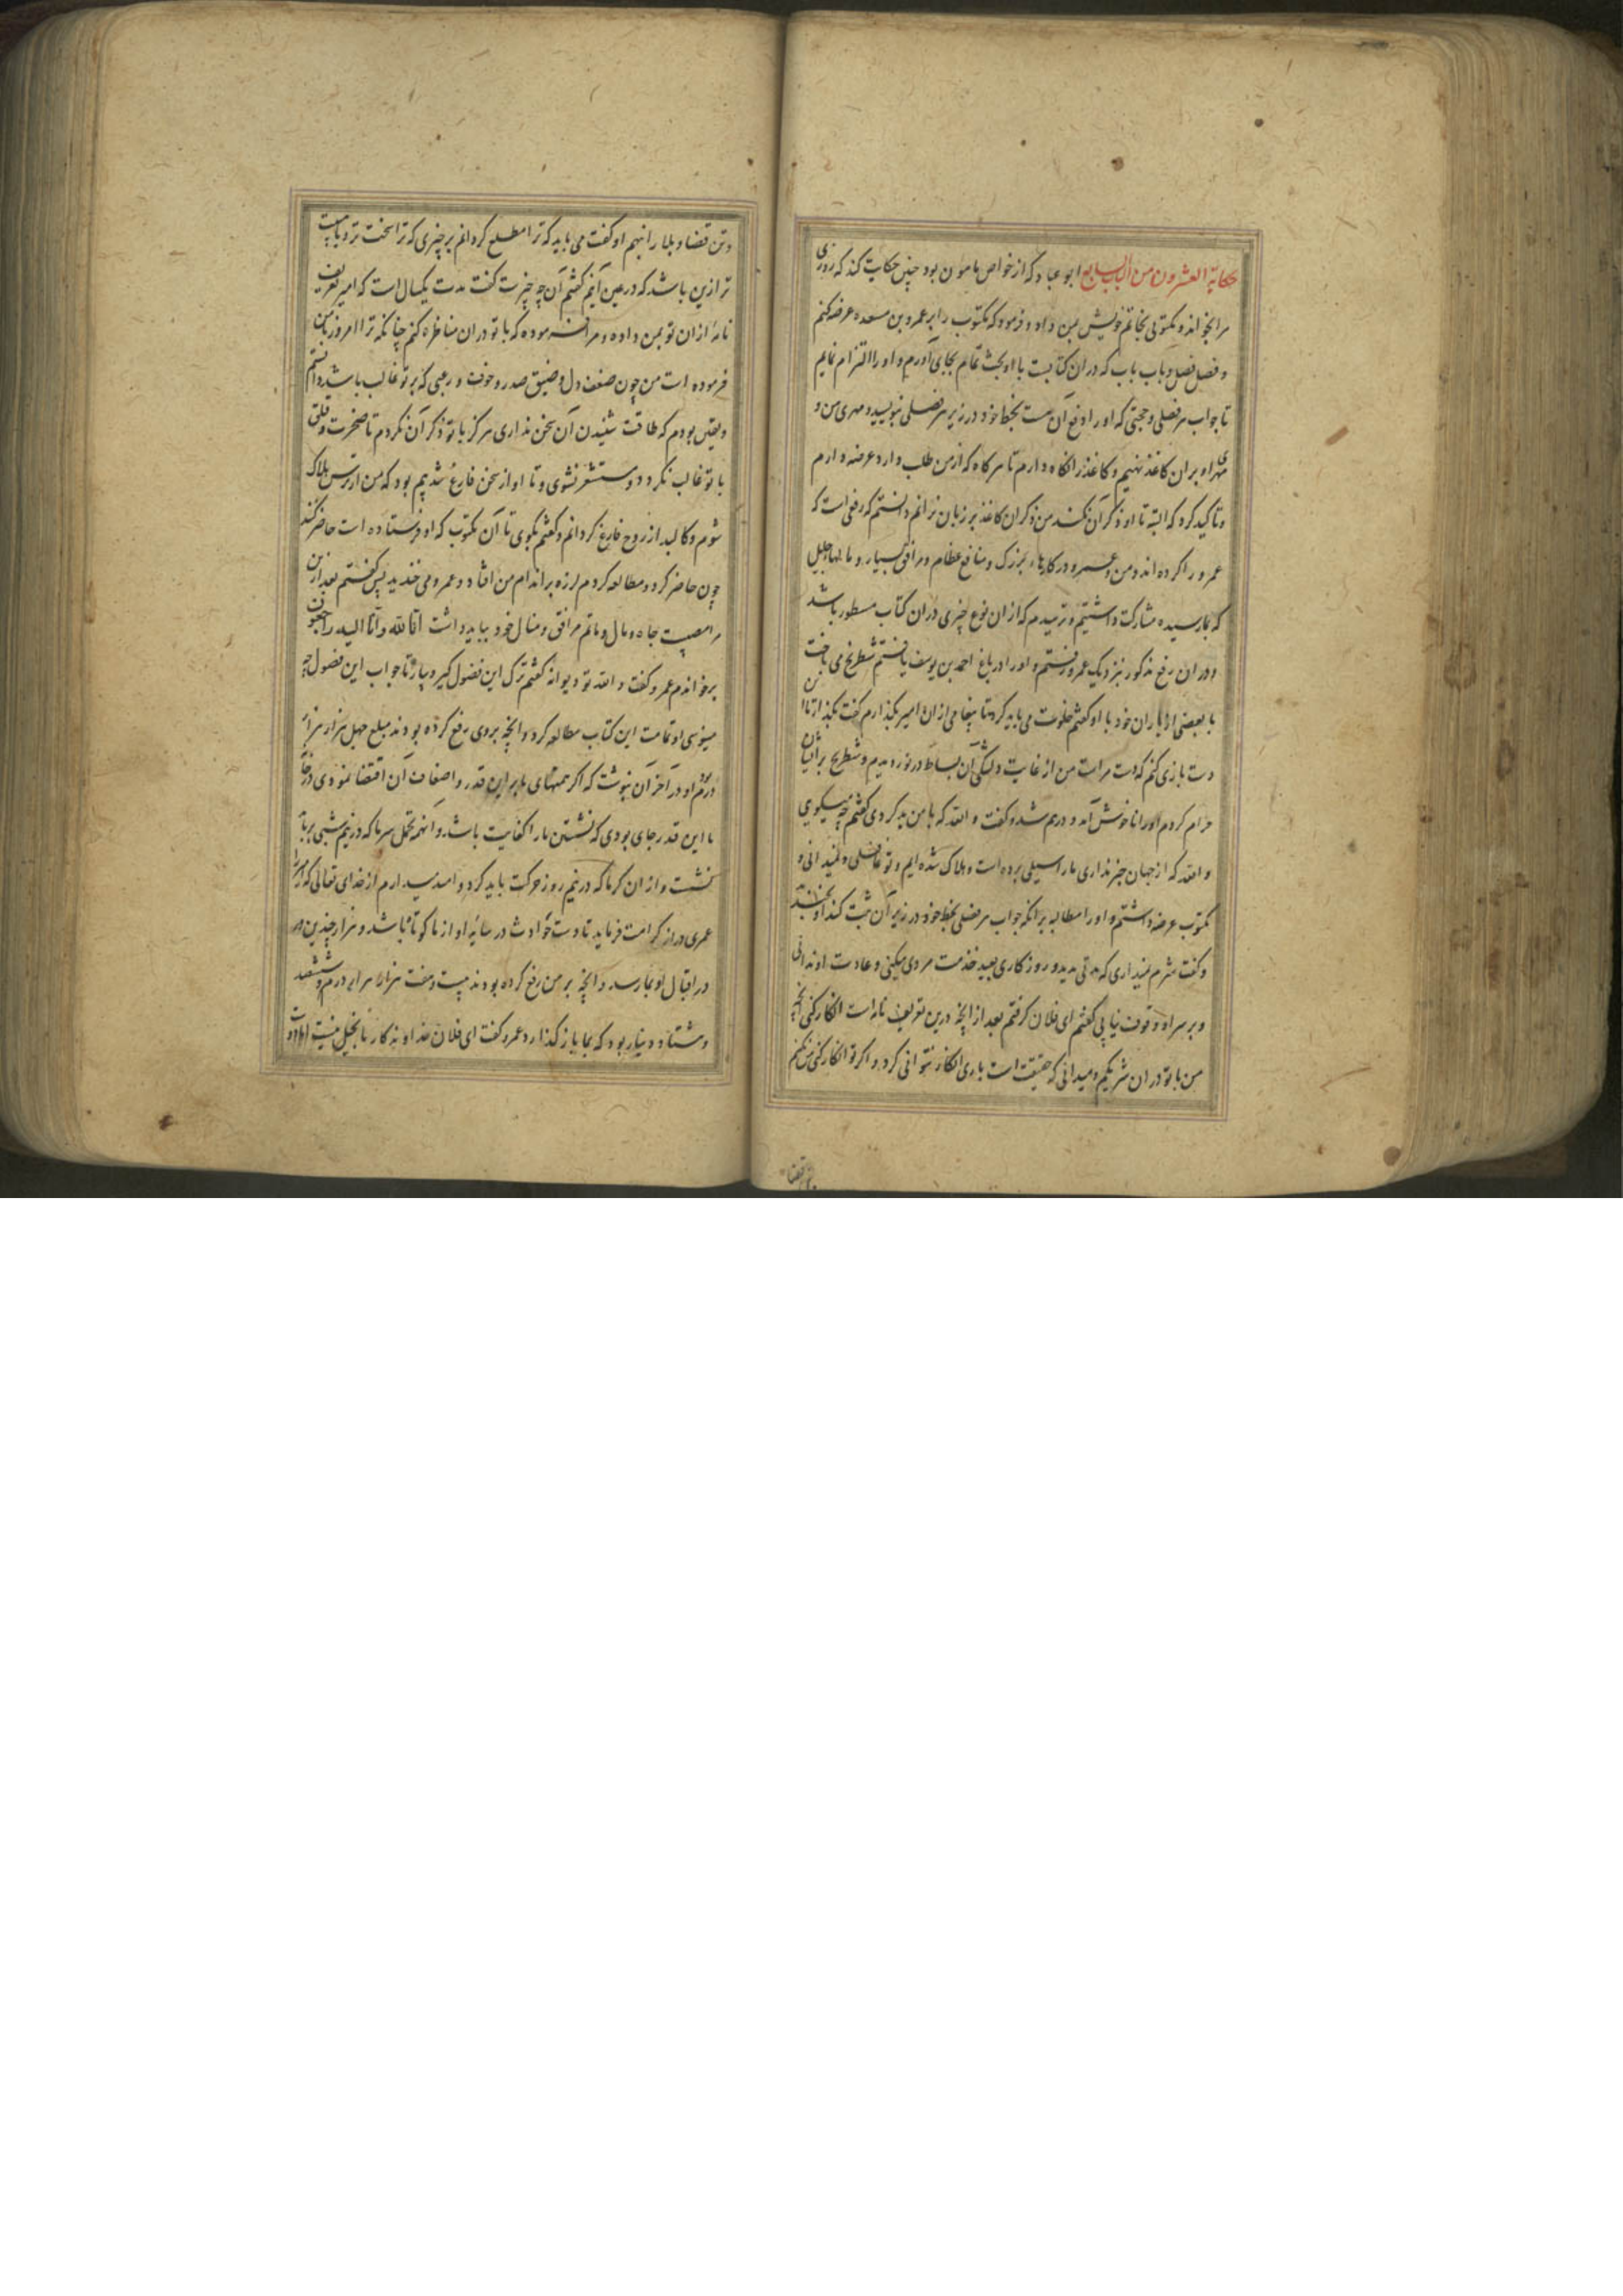 حکایة العشرون من الباب السابع ابو عباد که از خواص مامون بود چنین حکایت کند که روزی
مرا بخواند و مکتوبی بخاتم خویش بمن داد و فرمود که مکتوب را بر عمرو بن مسعده عرضه کنم
و فصل فصل و باب باب که در ان کتابست با او بحث تمام بجای آورم و او را التزام نمایم
تا جواب هر فصلی و حجتی که او را دفع آن هست بخط خود در زیر هر فصلی نبویسد و مهری من و
مهری او بران کاغذ نهیم و کاغذ را نکاه دارم تا هر کاه که از من طلب دارد عرضه دارم
و تاکید کرد که البته تا او ذکر آن نکند من ذکر ان کاغذ بر زبان نرانم دانستم که رفعی است که
عمرو را کرده اند و من و عمرو در کارهاء بزرک و منافع عظام و مرافق بسیار و مالهاء جلیل
که بما رسیده مشارکت داشتیم و ترسیدم که از ان نوع چیزی در ان کتاب مسطور باشد
و در ان رفع مذکور بنزدیک عمرو رفتم و او را در باغ احمد بن یوسف یافتم شطرنج می باخت
با بعضی از یاران خود با او کفتم خلوت می باید کرد تا پیغامی از ان امیر بکذارم کفت بکذار تا این
دست بازی کنم که دست مراست من از غایت دلتنکی آن بساط در نوردیدم و شطرنج بر ایشان
حرام کردم او را ناخوش آمد و درهم شد و کفت و الله که با من بد کردی کفتم چه میکویی
و الله که از جهان خبر نداری ما را سیلی برده است و هلاک شده ایم و تو غافلی و نمیدانی و
مکتوب عرضه داشتم و او را مطالبه بر انکه جواب هر فصلی بخط خود در زیر آن ثبت کند او بخندید
و کفت شرم نمیداری که مدتی مدید و روزکاری بعید خدمت مردی میکنی و عادت او ندانی
و بر سر او وقوف نیابی کفتم ای فلان کرفتم بعد از انچه درین تعریف نامه است انکار کنی انچه
من با تو در ان شریکم و میدانی که حقیقت است باری انکار نتوانی کرد و اکر تو انکار کنی من نکنم
وتن قضا
و تن قضا و بلا را نهیم او کفت می باید که ترا مطلع کردانم بر چیزی که ترا سخت تر و با هیبت
تر ازین باشد که در عین آنیم کفتم آن چه چیزست کفت مدت یکسال است که امیر تعریف
نامۀ از ان تو بمن داده و مرا فرموده که با تو در ان مناظره کنم چنانکه ترا امروز با من
فرموده است من چون ضعف دل و ضیق صدر و خوف و رعبی که بر تو غالب باشد دانستم
و یقین بودم که طاقت شنیدن آن سخن نداری هرکز با تو ذکر آن نکردم تا ضجرت و قلق
با تو غالب نکردد و مستشعر نشوی و تا او از سخن فارغ شد بیم بود که من از ترس هلاک
شوم و کالبد از روح فارغ کردانم و کفتم بکوی تا آن مکتوب که او فرستاده است حاضر کنند
چون حاضر کرد و مطالعه کردم لرزه بر اندام من افتاد و عمرو می خندید پس کفتم بعد ازین
مرا مصیبت جاه و مال و ماتم مرافق و منال خود بباید داشت انا لله و انا الیه راجعون
برخواندم عمرو کفت و الله تو دیوانۀ کفتم ترک این فضول کیر و بیار تا جواب این فصول چه
مینویسی او تمامت این کتاب مطالعه کرد و انچه بروی رفع کرده بودند مبلغ چهل هزار هزار
درم او در آخر آن نبوشت که اکر همتهای ما بر این قدر و اضعاف آن اقتضا نمودی در خانه
ما این قدر جای بودی که نشستن ما را کفایت باشد و آنهمه تحمل سرما که در نیم شبی بر باید
نشست و از ان کرما که در نیم روز حرکت باید کرد و امید میدارم از خدای تعالی که امیر را
عمری دراز کرامت فرماید تا دست حوادث در سایۀ او از ما کوتاه باشد و هزار چندین هم
در اقبال او بما رسد و انچه بر من رفع کرده بودند بیست و هفت هزار هزار درم و ششصد
و هشتاد دینار بود که بما باز کذارد عمرو کفت ای فلان خداوند کار ما بخیل نیست